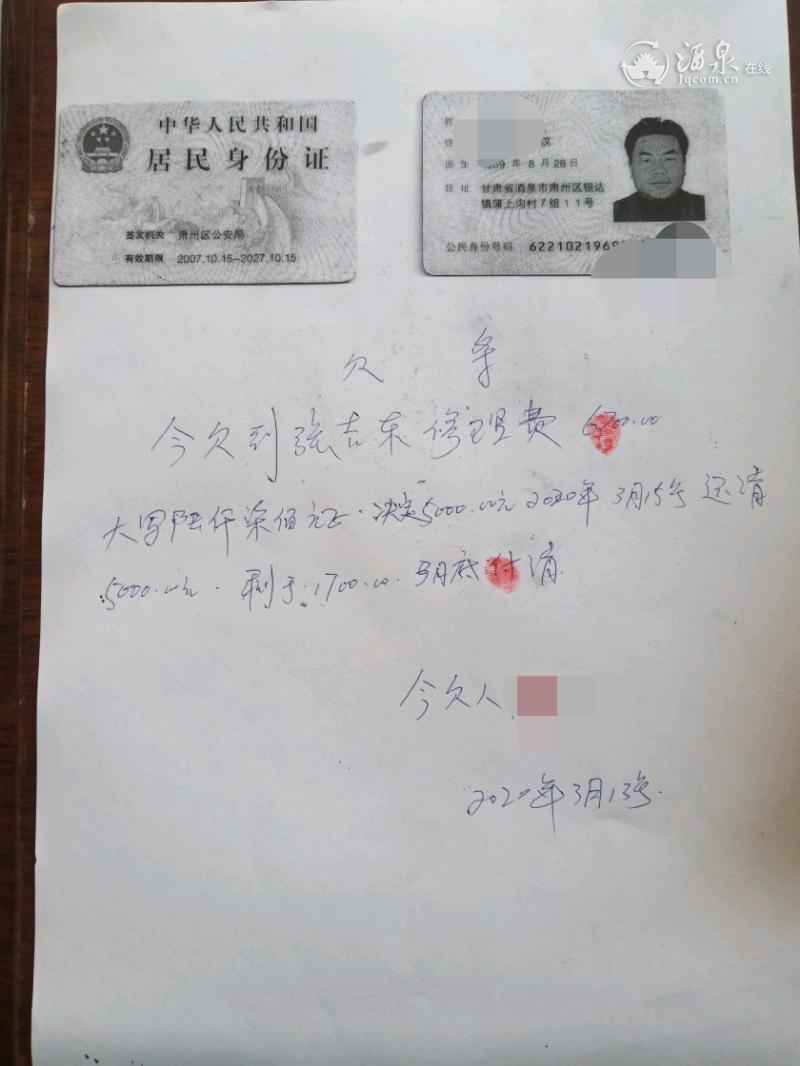 酒泉在线
Jqcom.cn
中华人民共和国
居民身份证
签发机关 肃州区公安局
有效期限 2007.10.15-2027.10.15
汉
年 8 月 28 日
住址 甘肃省酒泉市肃州区银达
镇蒲上沟村7组11号
公民身份号码 622102196
欠 条
今欠到张吉东修理费 6700.00
大写陆仟柒佰元正.决定5000.00元2020年3月15号还清
5000.00元.剩于1700.00.3月底付清
今欠人
2020年3月13号.